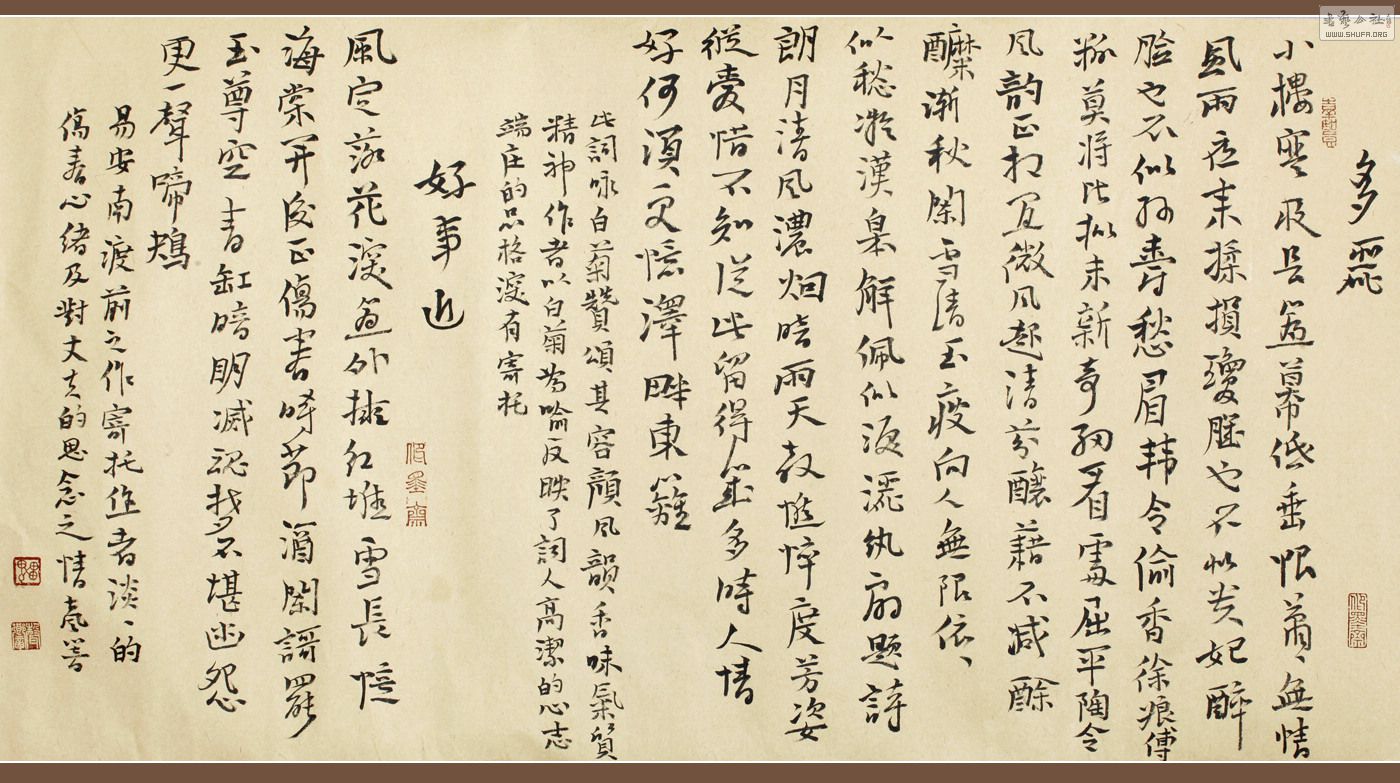 多麗
小樓寒夜長簾幕低垂恨蕭蕭無情
風雨夜來揉損瓊肌也不似貴妃醉
臉也不似孫壽愁眉韓令偷香徐娘傅
粉莫將比拟未新奇細看處屈平陶令
风韵正相宜微风起清芬醖藉不减酴
醾渐秋闌雪清玉瘦向人無限依依
似愁凝漢皋解佩似淚灑紈扇题詩
朗月清风濃烟暗雨天教憔悴度芳姿
縱愛惜不知從此留得幾多時人情
好何須更憶澤畔東籬
此詞咏白菊贊頌其容顏风韻香味氣質
精神作者以白菊為喻反映了詞人高潔的心志
端庄的品格深有寄托
好事近
風定落花深簾外擁红堆雪長憶
海棠开後正傷春時節酒闌謌罷
玉尊空青缸暗明滅魂梦不堪幽怨
更一聲啼鴂
易安南渡前之作寄托作者淡淡的
傷春心緒及對丈夫的思念之情
书艺公社
WWW.SHUFA.ORG